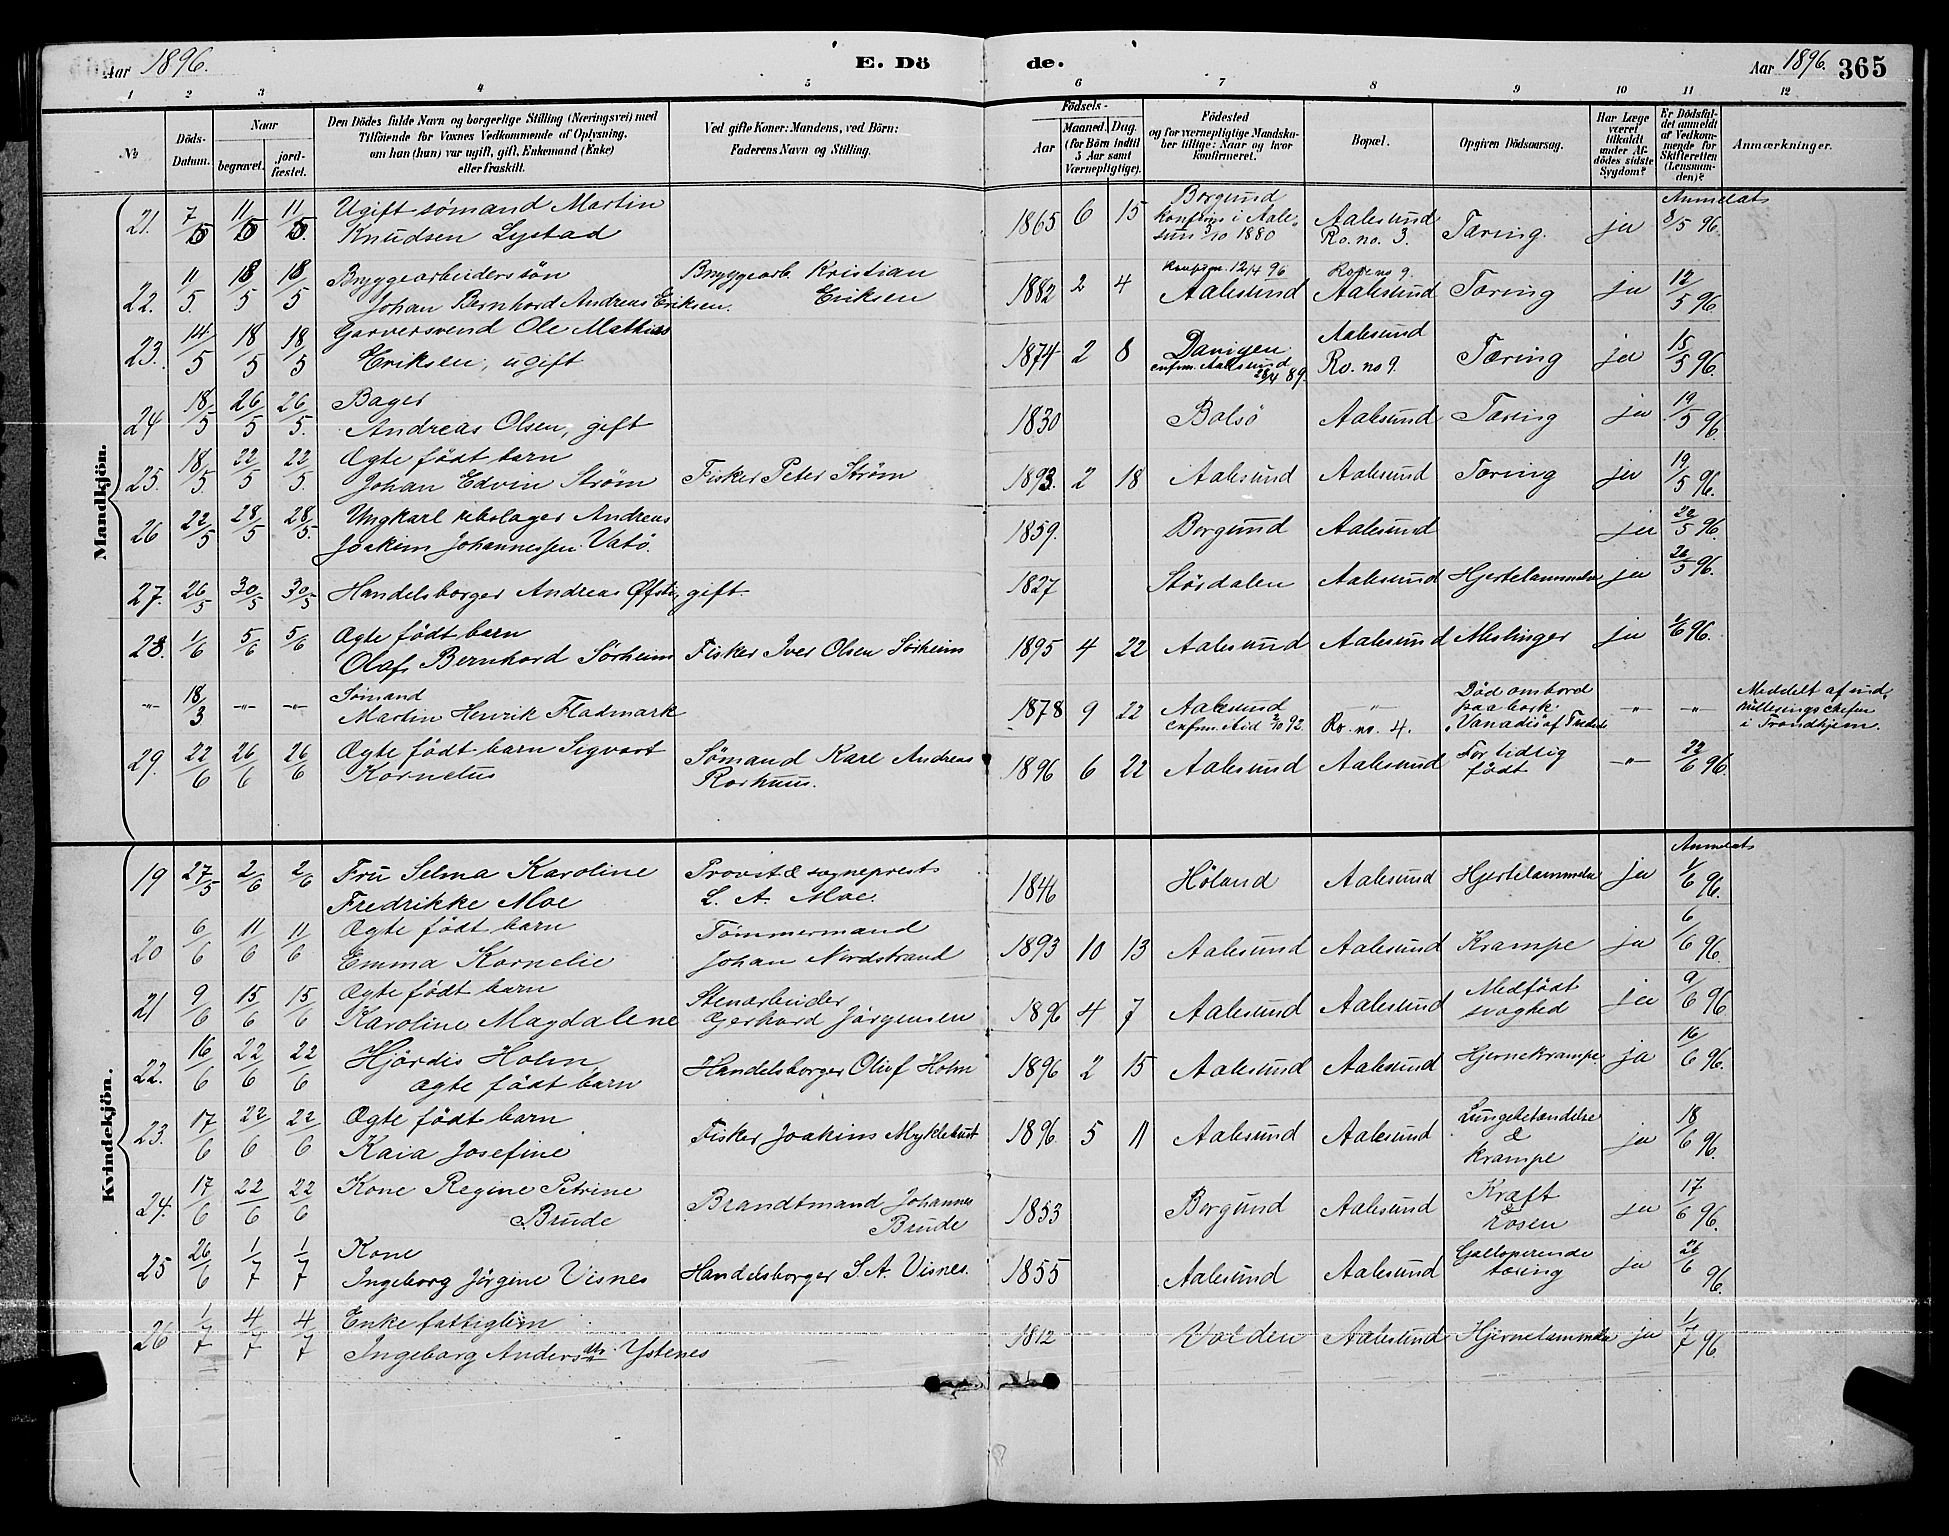 Aar 1896. E. Dö de. Aar 1896. 365
1 2 3 4 5 6 7 8 9 10 11 12
No Döds-Datum. Naar begravet. jordfæstet. Den Dödes fulde Navn og borgerlige Stilling (Næringsvei) med Tilföiende for Voxnes Vedkommende af Oplysning, om han (hun) var ugift, gift, Enkemand (Enke) eller fraskilt. Ved gifte Koner: Mandens, ved Börn: Faderens Navn og Stilling. Födsels- Aar Maaned. Dag. (for Börn indtil 5 Aar samt Værnepligtige). Födested og for værnepligtige Mandskaber tillige: Naar og hvor konfirmeret. Bopæl. Opgiven Dödsaarsag. Har Læge været tilkaldt under Afdödes sidste Sygdom? Er Dödsfaldet anmeldt af Vedkommende for Skifteretten (Lensmanden)? Anmærkninger.
Mandkjön.
21. 7/5 11/5 11/5 Ugift sømand Martin Knudsen Lystad 1865 6 15 Borgund konfirm i Aalesund 3/10 1880 Aalesund Ro. no. 3. Tæring. ja Anmeldt 8/5 96.
22. 11/5. 18/5 18/5 Bryggearbeiderssøn Johan Bernhard Andreas Eriksen. Bryggearb. Kristian Eriksen 1882 2 4 Konfirm. 12/4 96 Aalesund Rode no 9. Aalesund Tæring ja 12/5 96.
23. 14/5 18/5 18/5 Garversvend Ole Mathias Eriksen, ugift 1874 2 8 Davigen cnfrm. Aalesund 28/4 89. Aalesund Ro. no 9. Tæring ja 15/5 96.
24 18/5 26/5 26/5. Bager Andreas Olsen, gift 1830 Bolsö Aalesund Tæring ja 19/5 96.
25. 18/5. 22/5 22/5. Ægte født barn Johan Edvin Strøm Fisker Peter Strøm 1893. 2 18 Aalesund Aalesund Tæring ja 19/5 96.
26 22/5 28/5 28/5. Ungkarl rebslager Andreas Joakim Johannessen Vatö. 1859. Borgund Aalesund ja 22/5 96.
27. 26/5 30/5 30/5 Handelsborger Andreas Øfsti, gift. 1827 Stördalen Aalesund Hjertelammelse ja 26/5 96.
28. 1/6 5/6 5/6 Ægte født barn Olaf Bernhard Sörheim Fisker Iver Olsen Sörheim 1895 4 22 Aalesund Aalesund Meslinger ja 2/6 96.
-"- 18/3 -"- -"- Sømand Martin Henrik Fladmark 1878 9 22 Aalesund cnfrm. 2/10 92. -"- Ro. no. 4. Död ombord paa bark. "Vanadis" af -"- -"- Meddelt af indrulleringschefen i Trondhjem.
29. 22/6 26/6 26/6 Ægte født barn Sigvart Kornelius Sømand Karl Andreas Rorhuus. 1896 6 22 Aalesund Aalesund For tidlig født -"- 22/6 96.
Kvindekjön.
19 27/5 2/6 2/6 Fru Selma Karoline Fredrikke Moe Provst & sogneprest L. A. Moe. 1846 Höland Aalesund Hjertelammelse ja Anmeldt 1/6 96.
20 6/6 11/6 11/6 Ægte født barn Emma Kornelie Tömmermand Johan Nordstrand 1893 10 13 Aalesund Aalesund Krampe ja 6/6 96.
21 9/6 15/6 15/6 Ægte født barn Karoline Magdalene Stenarbeider Gerhard Jörgensen 1896 4 7 Aalesund Aalesund Medfödt svaghed ja 9/6 96
22. 16/6 22/6 22/6 Hjördis Holm ægte født barn Handelsborger Oluf Holm 1896 2 15 Aalesund Aalesund Hjernekrampe. ja 16/6 96.
23. 17/6 22/6 22/6 Ægte født barn Kaia Josefine Fisker Joakim Myklebust 1896. 5 11 Aalesund Aalesund Lungebetændelse & krampe ja 18/6 96.
24. 17/6 22/6 22/6 Kone Regine Petrine Brude Brandtmand Johannes Brude 1853 Borgund Aalesund Kræft & rosen ja 17/6 96.
25 26/6 1/7 1/7 Kone Ingeborg Jörgine Visnes Handelsborger S. A. Visnes. 1855 Aalesund Aalesund Galloperende tæring ja 26/6 96.
26 1/7 4/7 4/7 Enke fattiglem Ingeborg Andersdtr. Ystenes 1812 Volden Aalesund Hjernelammelse ja 1/7 96.